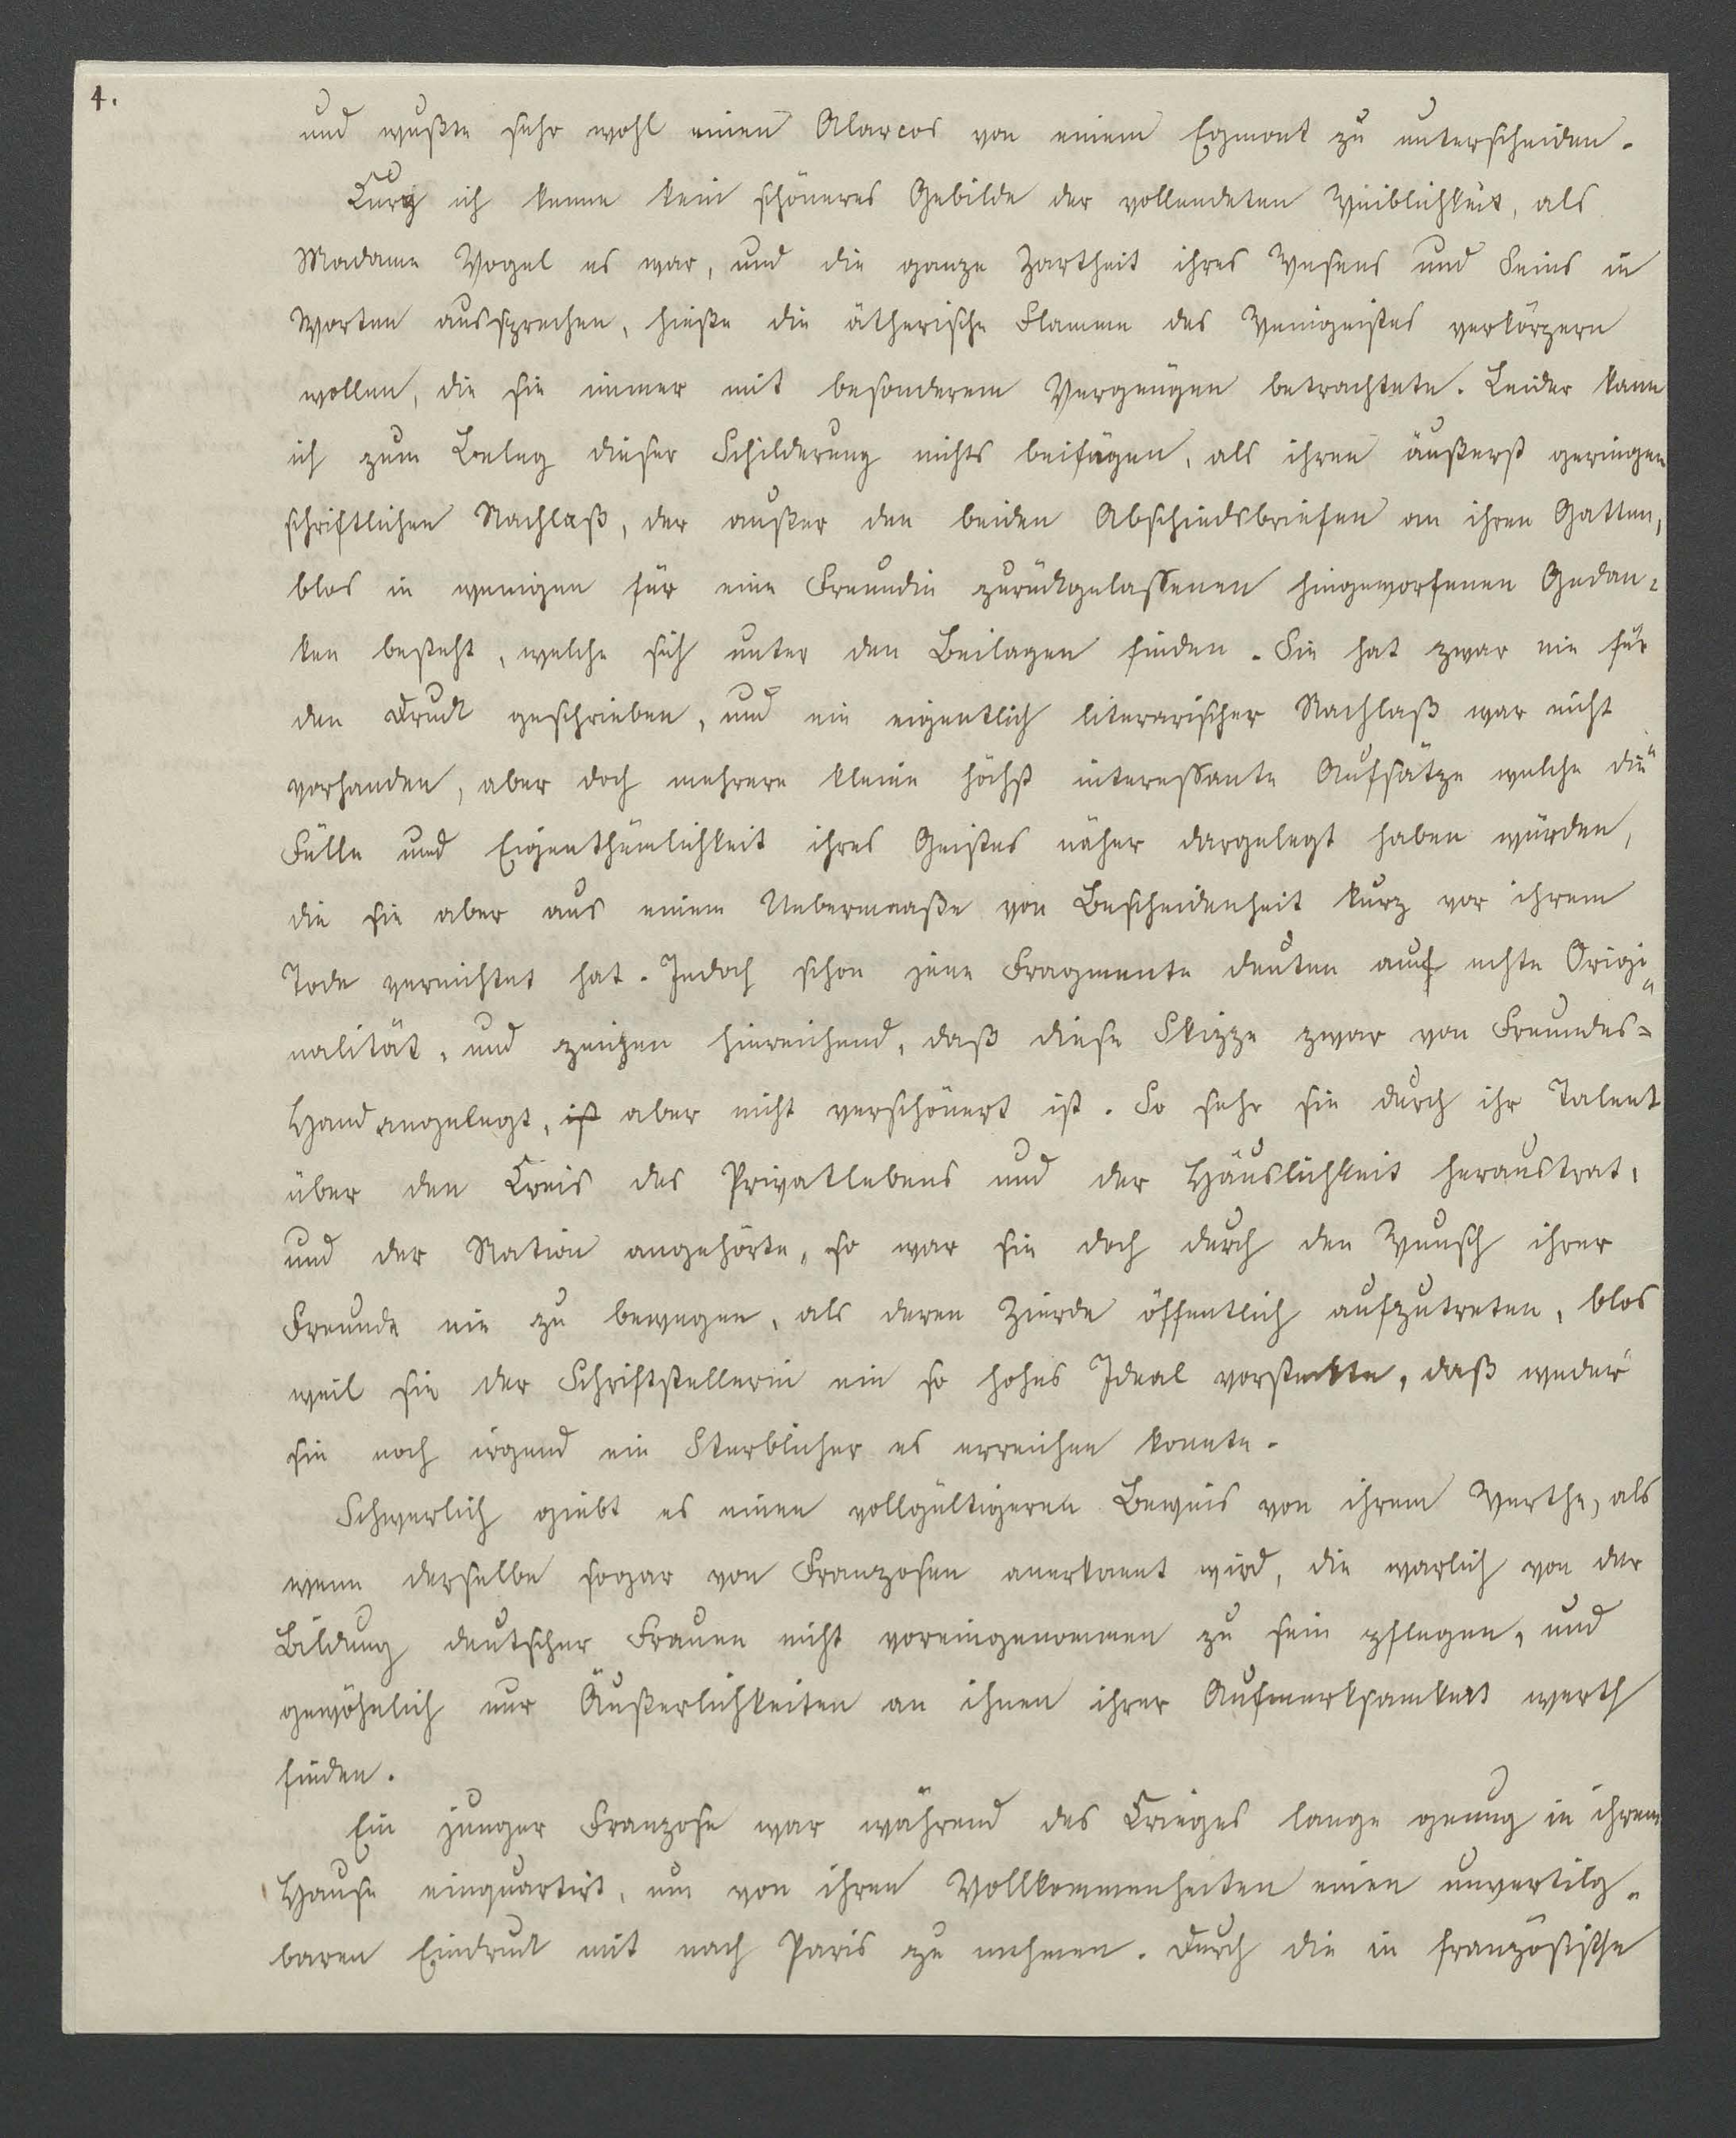 4.
und wußte sehr wohl einen Alarcos von einem Egmont zu unterscheiden.
Kurz ich kenne kein schöneres Gebilde der vollendeten Weiblichkeit, als
Madame Vogel es war, und die ganze Zartheit ihres Wesens und Seins in
Worten aussprechen, hieße die ätherische Flamme des Weingeistes verkörpern
wollen, die sie immer mit besonderem Vergnügen betrachtete. Leider kann
ich zum Beleg dieser Schilderung nichts beifügen, als ihren äußerst geringen
schriftlichen Nachlaß, der außer den beiden Abschiedsbriefen an ihren Gatten,
blos in wenigen für eine Freundin zurückgelassenen hingeworfenen Gedan-
ken besteht, welche sich unter den Beilagen finden. Sie hat zwar nie für
den Druck geschrieben, und ein eigentlich literarischer Nachlaß war nicht
vorhanden, aber doch mehrere kleine höchst interessante Aufsätze welche die
Fülle und Eigenthümlichkeit ihres Geistes näher dargelegt haben würden,
die sie aber aus einem Uebermaaße von Bescheidenheit kurz vor ihrem
Tode vernichtet hat. Jedoch schon jene Fragmente deuten auf echte Origi-
nalität, und zeigen hinreichend, daß diese Skizze zwar von Freundes-
Hand angelegt, ist aber nicht verschönert ist. So sehr sie durch ihr Talent
über den Kreis des Privatlebens und der Häuslichkeit heraustrat,
und der Nation angehörte, so war sie doch durch den Wunsch ihrer
Freunde nie zu bewegen, als deren Zierde öffentlich aufzutreten, blos
weil sie der Schriftstellerin ein so hohes Ideal vorsteckte, daß weder
sie noch irgend ein Sterblicher es erreichen konnte.
Schwerlich giebt es einen vollgültigeren Beweis von ihrem Werthe, als
wenn derselbe sogar von Franzosen anerkannt wird, die warlich von der
Bildung deutscher Frauen nicht voreingenommen zu sein pflegen, und
gewöhnlich nur Äußerlichkeiten an ihnen ihrer Aufmerksamkeit werth
finden.
Ein junger Franzose war während des Krieges lange genug in ihrem
Hause einquartirt, um von ihren Vollkommenheiten einen unvertilg-
baren Eindruck mit nach Paris zu nehmen. Durch die in französische